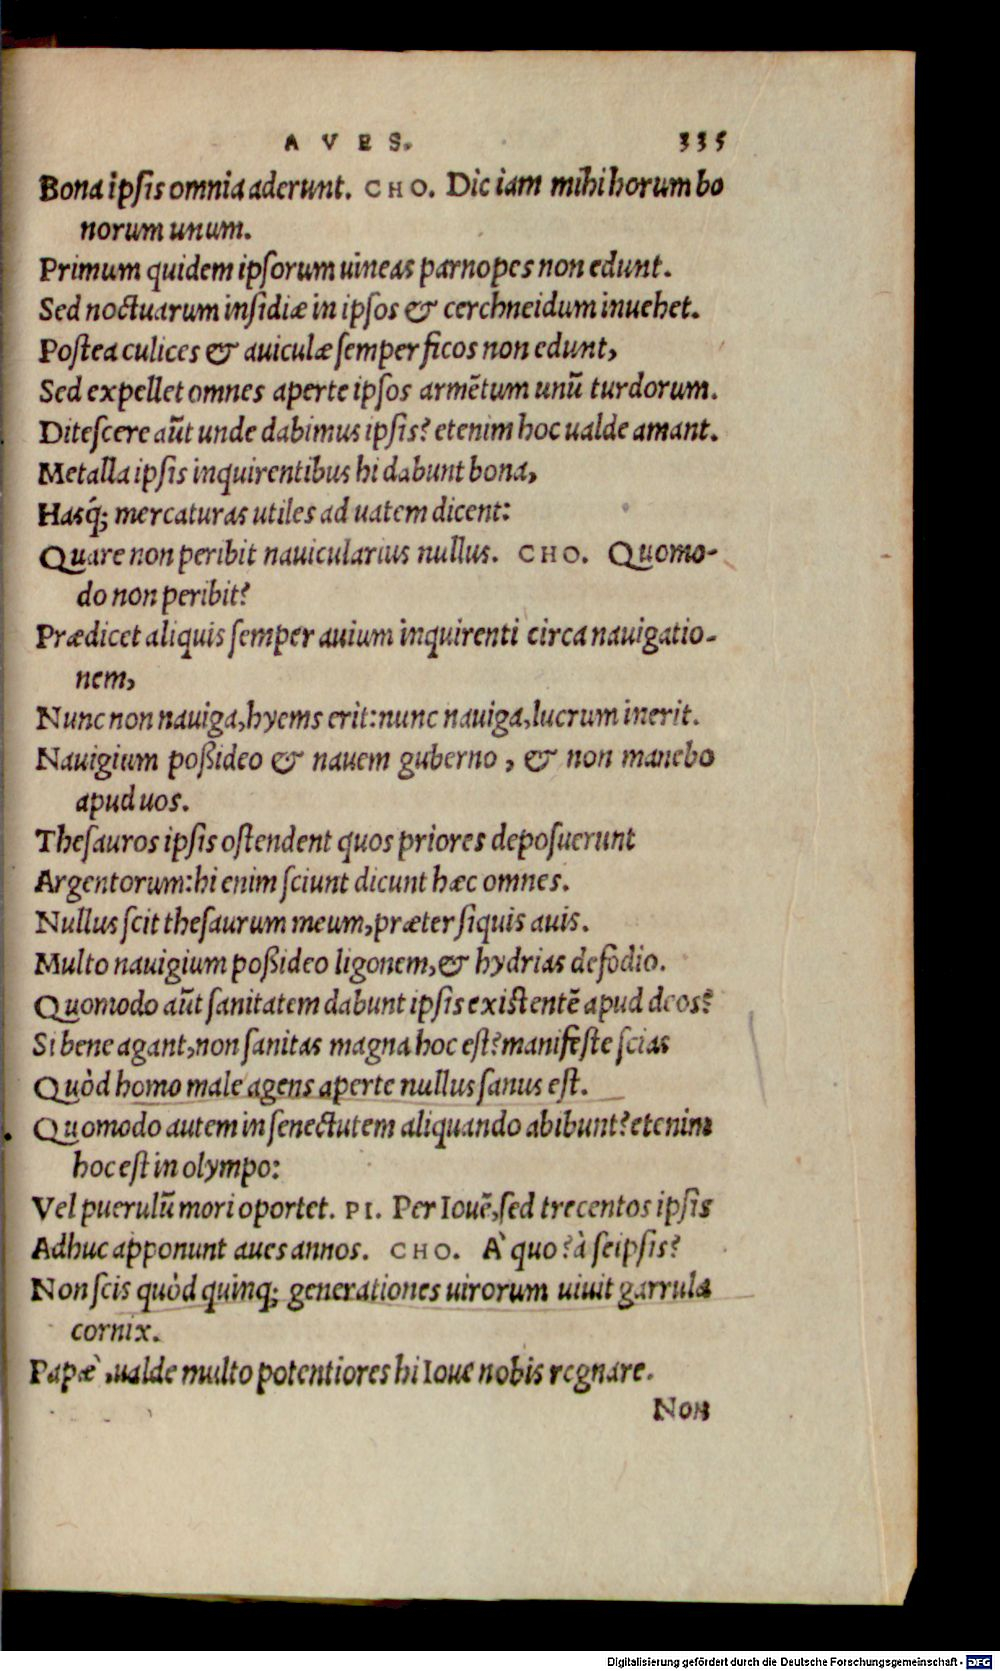 AVES. 335
Bona ipsis omnia aderunt. CHO. Dic iam mihi horum bo
norum unum.
Primum quidem ipsorum uineas parnopes non edunt.
Sed noctuarum insidiæ in ipsos & cerchneidum inuehet.
Postea culices & auiculæ semper ficos non edunt,
Sed expellet omnes aperte ipsos armẽtum unũ turdorum.
Ditescere aũt unde dabimus ipsis? etenim hoc ualde amant.
Metalla ipsis inquirentibus hi dabunt bona,
Hasq́; mercaturas utiles ad uatem dicent:
Quare non peribit nauicularius nullus. CHO. Quomo-
do non peribit?
Prædicet aliquis semper auium inquirenti circa nauigatio-
nem,
Nunc non nauiga, hyems erit: nunc nauiga, lucrum inerit.
Nauigium poßideo & nauem guberno, & non manebo
apud uos.
Thesauros ipsis ostendent quos priores deposuerunt
Argentorum: hi enim sciunt dicunt hæc omnes.
Nullus scit thesaurum meum, præter siquis auis.
Multo nauigium poßideo ligonem, & hydrias defodio.
Quomodo aũt sanitatem dabunt ipsis existentẽ apud deos?
Si bene agant, non sanitas magna hoc est? manifeste scias
Quòd homo male agens aperte nullus sanus est.
Quomodo autem in senectutem aliquando abibunt? etenim
hoc est in olympo:
Vel puerulũ mori oportet. PI. Per Iouẽ, sed trecentos ipsis
Adhuc apponunt aues annos. CHO. À quo? à seipsis?
Non scis quòd quinq; generationes uirorum uiuit garrula
cornix.
Papæ, ualde multo potentiores hi Ioue nobis regnare.
Non
Digitalisierung gefördert durch die Deutsche Forschungsgemeinschaft - DFG